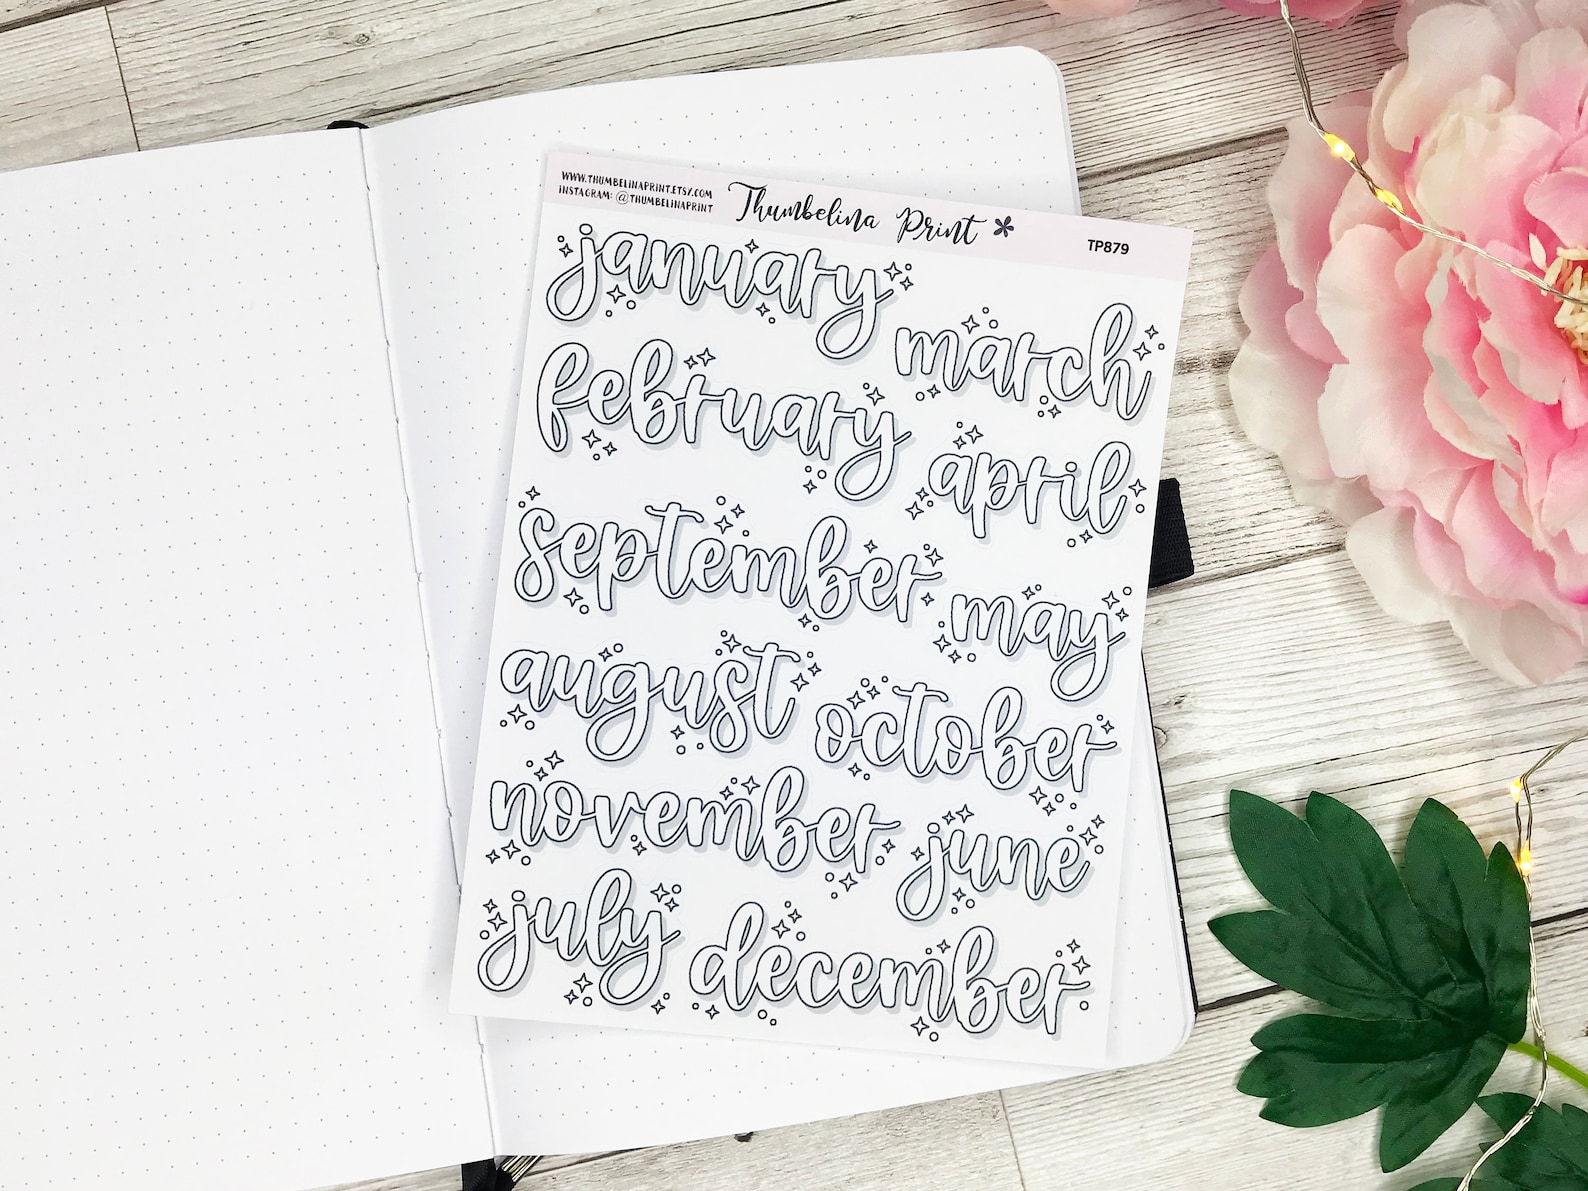 WWW.THUMBELINAPRINT.ETSY.COM
INSTAGRAM: @THUMBELINAPRINT
Thumbelina Print
TP879
january
march
february
april
september
may
august
october
november
june
july
december